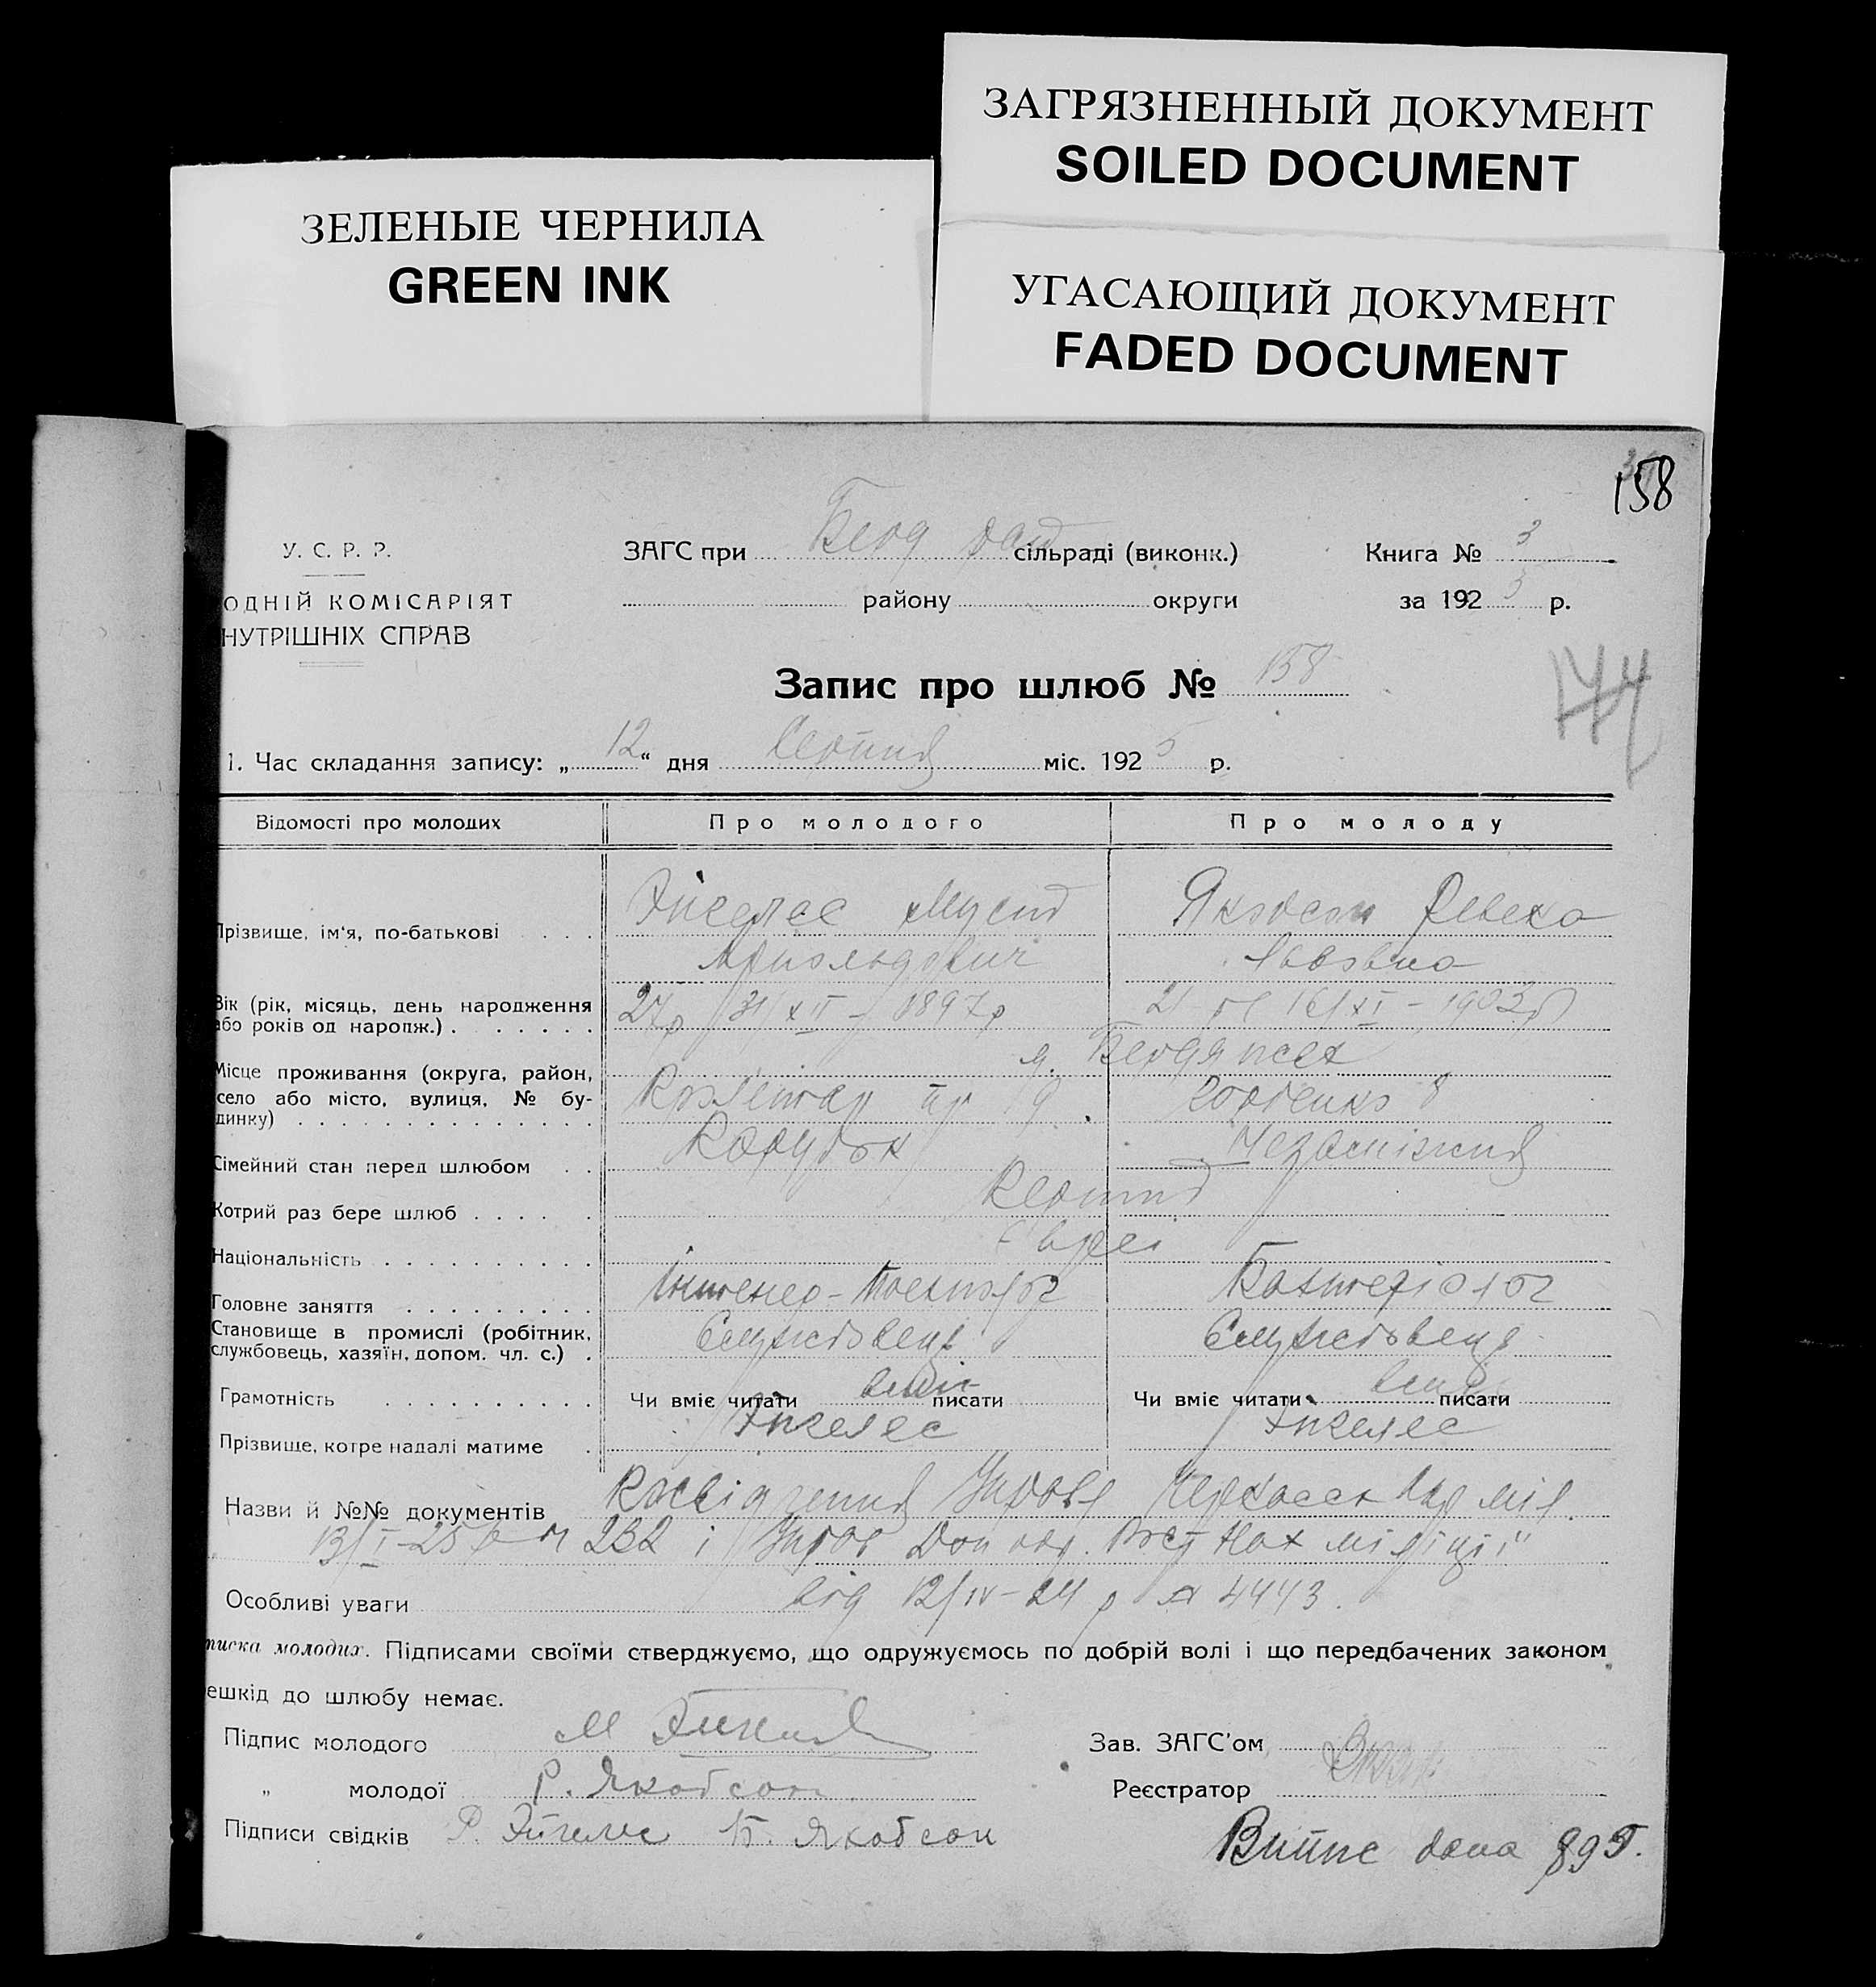 ЗАГРЯЗНЕННЫЙ ДОКУМЕНТ
SOILED DOCUMENT
ЗЕЛЕНЫЕ ЧЕРНИЛА
GREEN INK
УГАСАЮЩИЙ ДОКУМЕНТ
FADED DOCUMENT
158
У. С. Р. Р.
ОДНІЙ КОМІСАРІЯТ
НУТРІШНІХ СПРАВ
ЗАГС при Берд сільраді (виконк.)
району округи
Книга № 3
за 192 5 р.
Запис про шлюб № 158
144
1. Час складання запису: „ 12 “ дня Серпня міс. 192 5 р.
Відомості про молодих Про молодого Про молоду
Прізвище, ім‘я, по-батькові Якобсон Ревека
Арнольдович Львовна
Вік (рік, місяць, день народження або років од народж.) 27р 31/XII – 1897р 21 16/XI – 1903р
м. Бердянск
Місце проживання (округа, район, село або місто, вулиця, № будинку) пр 9. 8
Сімейний стан перед шлюбом Незаміжня
Котрий раз бере шлюб
Національність Євреї
Головне заняття Інженер-Технолог Бактеріолог
Становище в промислі (робітник, службовець, хазяїн, допом. чл. с.) Службовець Службовець
Грамотність Чи вміє читати вміє писати Чи вміє читати вміє писати
Прізвище, котре надалі матиме Эйгелес Эйгелес
Назви й №№ документів Посвідчення Управ Черкасск мил.
13/I–25 р № 232 і Управ Дон міліції"
Особливі уваги від 12/IV–24 р № 4443.
писка молодих. Підписами своїми стверджуємо, що одружуємось по добрій волі і що передбачених законом
ешкід до шлюбу немає.
Підпис молодого М
Зав. ЗАГС'ом
„ молодої Р. Якобсон
Реєстратор
Підписи свідків Р. Эйгелес Б. Якобсон
Випис дана 895.